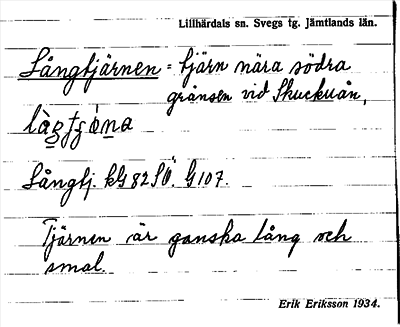 Lillhärdals sn. Svegs tg. Jämtlands län.
Långtjärnen = tjärn nära södra
gränsen vid Skuckuån,
Långtj. kG 82 SÖ. G 107.
Tjärnen är ganska lång och
smal.
Erik Eriksson 1934.